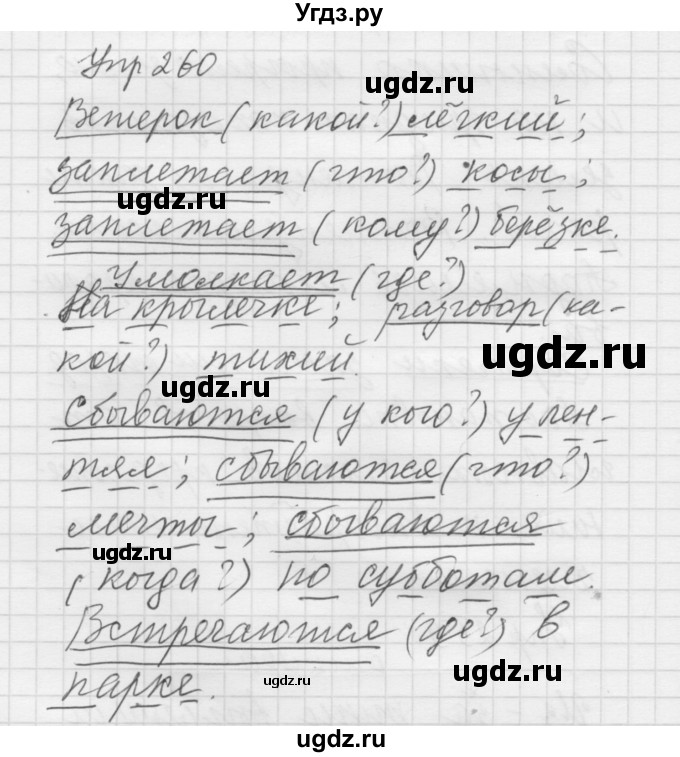 Угдз.ру
Упр 260
ugdz.ru
Ветерок (какой?) лёгкий;
заплетает (что?) косы;
ugdz.ru
заплетает (кому?) берёзке.
ugdz.ru
Умолкает (где?)
На крылечке; разговор (ка-
ugdz.ru
кой?) тихий.
ugdz.ru
Сбываются (у кого?) у лен-
тяя; сбываются (что?)
мечты; сбываются
ugdz.ru
(когда?) по субботам.
Встречаются (где?) в
парке.
ugdz.ru
ugdz.ru
ugdz.ru